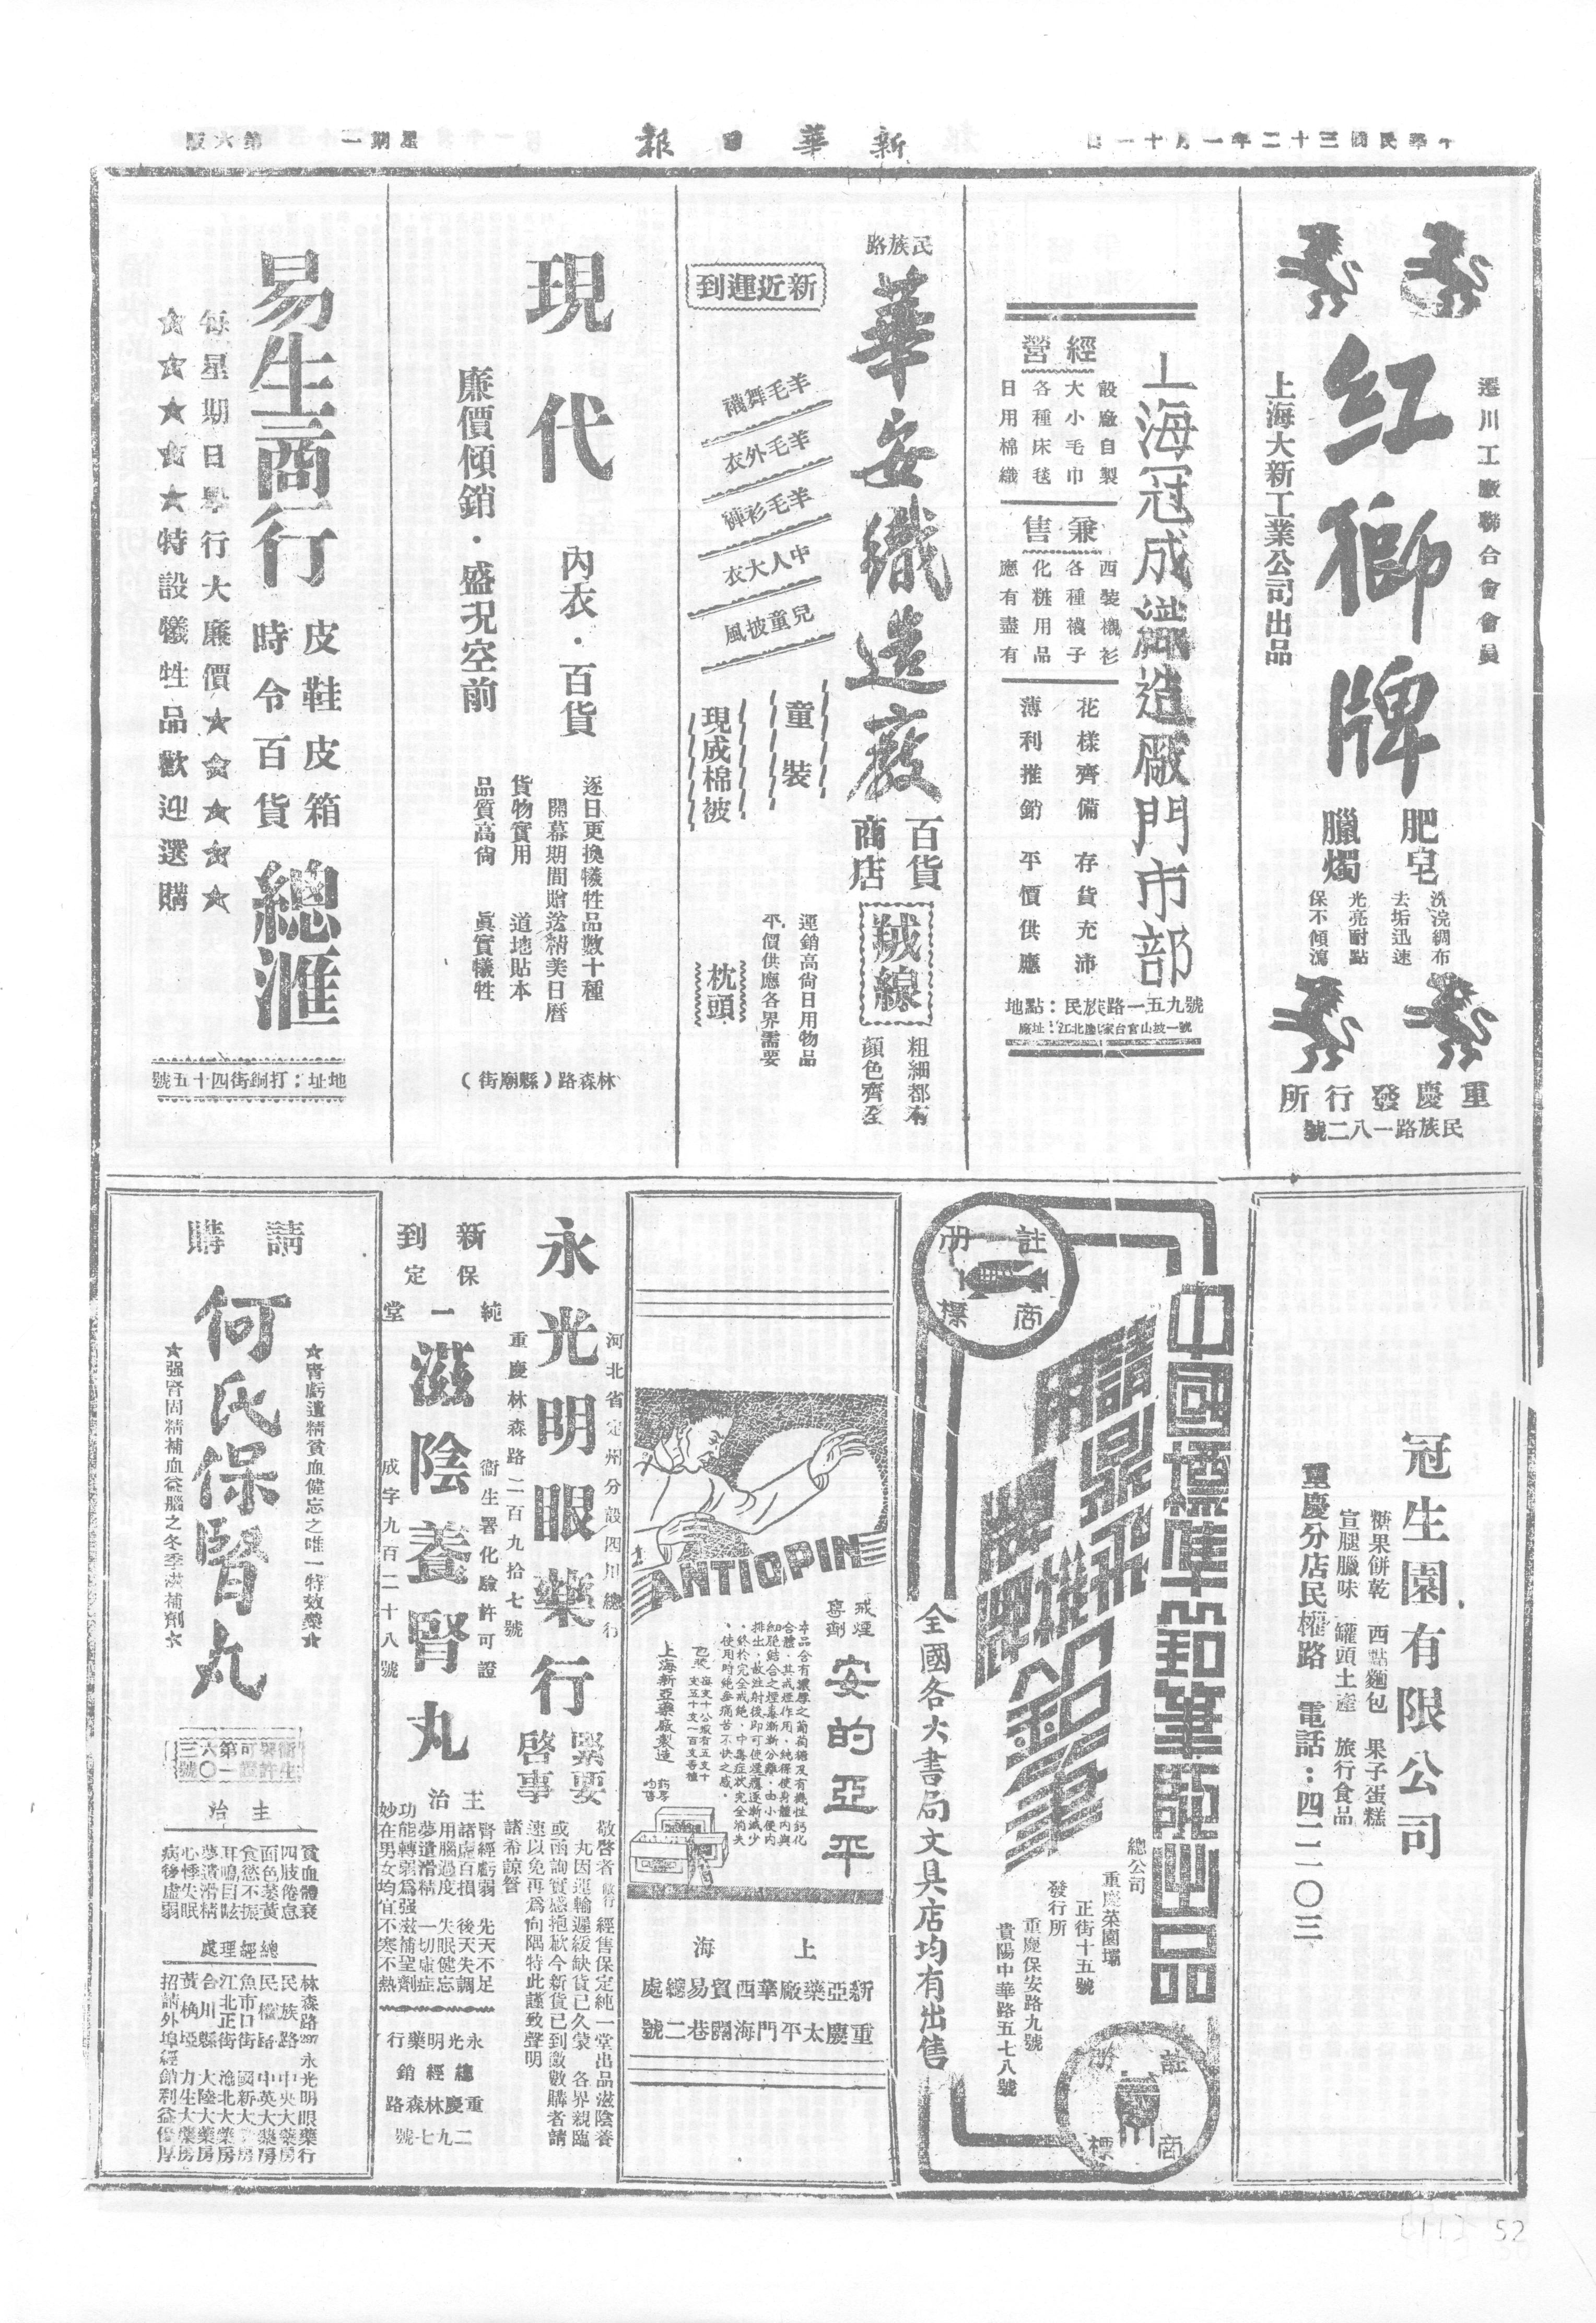 中華民國三十二年一月十一日
新華日報
星期一
第六版
遷川工廠聯合會會員
紅獅牌
上海大新工業公司出品
肥皂
洗浣綢布
去垢迅速
臘燭
光亮耐點
保不傾瀉
重慶發行所
民族路一八二號
上海冠成織造廠門市部
經營
設廠自製
大小毛巾
各種床毯
日用棉織
兼售
西裝襯衫
各種襪子
化粧用品
應有盡有
花樣齊備 存貨充沛
薄利推銷 平價供應
地點:民族路一五九號
廠址:江北廖家台官山坡一號
民族路
華安織造廠
百貨
商店
新近運到
羊毛舞襪
羊毛外衣
羊毛衫褲
中人大衣
兒童披風
童裝
現成棉被
絨線
粗細都有
顏色齊全
運銷高尚日用物品
平價供應各界需要
枕頭
現代
內衣·百貨
廉價傾銷·盛況空前
逐日更換犧牲品數十種
開幕期間贈送精美日曆
貨物實用 道地貼本
品質高尚 真實犧牲
林森路(縣廟街)
易生商行
皮鞋皮箱
時令百貨
總滙
每星期日舉行大廉價★☆★☆★
☆☆★☆★特設犧牲品歡迎選購
地址:打銅街四十五號
冠生園有限公司
糖果餅乾 西點麵包 果子蛋糕
宣腿臘味 罐頭土產 旅行食品
重慶分店民權路 電話:四二一〇三
中國標準鉛筆廠出品
註冊
商標
請用鼎牌飛機牌鉛筆
全國各大書局文具店均有出售
總公司
重慶菜園壩
正街十五號
發行所
重慶保安路九號
貴陽中華路五七八號
註冊
商標
ANTIOPIN
戒煙
專劑
安的亞平
本品含有濃厚之葡萄糖及有機性鈣化
合體·其戒煙作用·純得使身體內與
細胞結合之煙毒漸漸分離·由小便內
排出·故注射後即可使煙癮逐漸減少
·終於完全戒絕·中毒症狀完全消失
·使用時絕無痛苦不快之感·
包裝 每支十公撮有五支十
支五十支一百支各種
上海新亞藥廠製造
上海
新亞藥廠華西貿易總處
重慶太平門海關巷二號
永光明眼藥行
河北省定州分設四川總行
重慶林森路二百九拾七號
緊要
啓事
敬啓者敝行經售保定純一堂出品滋陰養
丸因運輸遲緩缺貨已久蒙 各界親臨
或函詢實感抱歉今新貨已到敝數購者請
速以免再為向隅特此謹致聲明
諸希諒督
新到
保定
純一堂
滋陰養腎丸
衛生署化驗許可證
成字九百二十八號
主治
腎經虧弱 先天不足
諸虛百損 後天失調
用腦過度 失眠健忘
夢遺滑精 一切虛症
功能轉弱為强滋補聖劑
妙在男女均宜不寒不熱
永光明藥行
總經銷
重慶林森路
二九七號
請購
何氏保腎丸
★腎虧遺精貧血健忘之唯一特效藥★
★强腎固精補血益腦之冬季滋補劑★
衛生署許可證第一六〇三號
主治
貧血體衰
四肢倦怠
面色萎黃
食慾不振
耳鳴目眩
夢遺滑精
心悸失眠
病後虛弱
總經理處
林森路297永光明眼藥行
民族路 中央大藥房
民權路 中英大藥房
魚市口街 國新大藥房
江北正街 渝北大藥房
合川縣 大陸大藥房
黃桷埡 力生大藥房
招請外埠經銷利益優厚
52